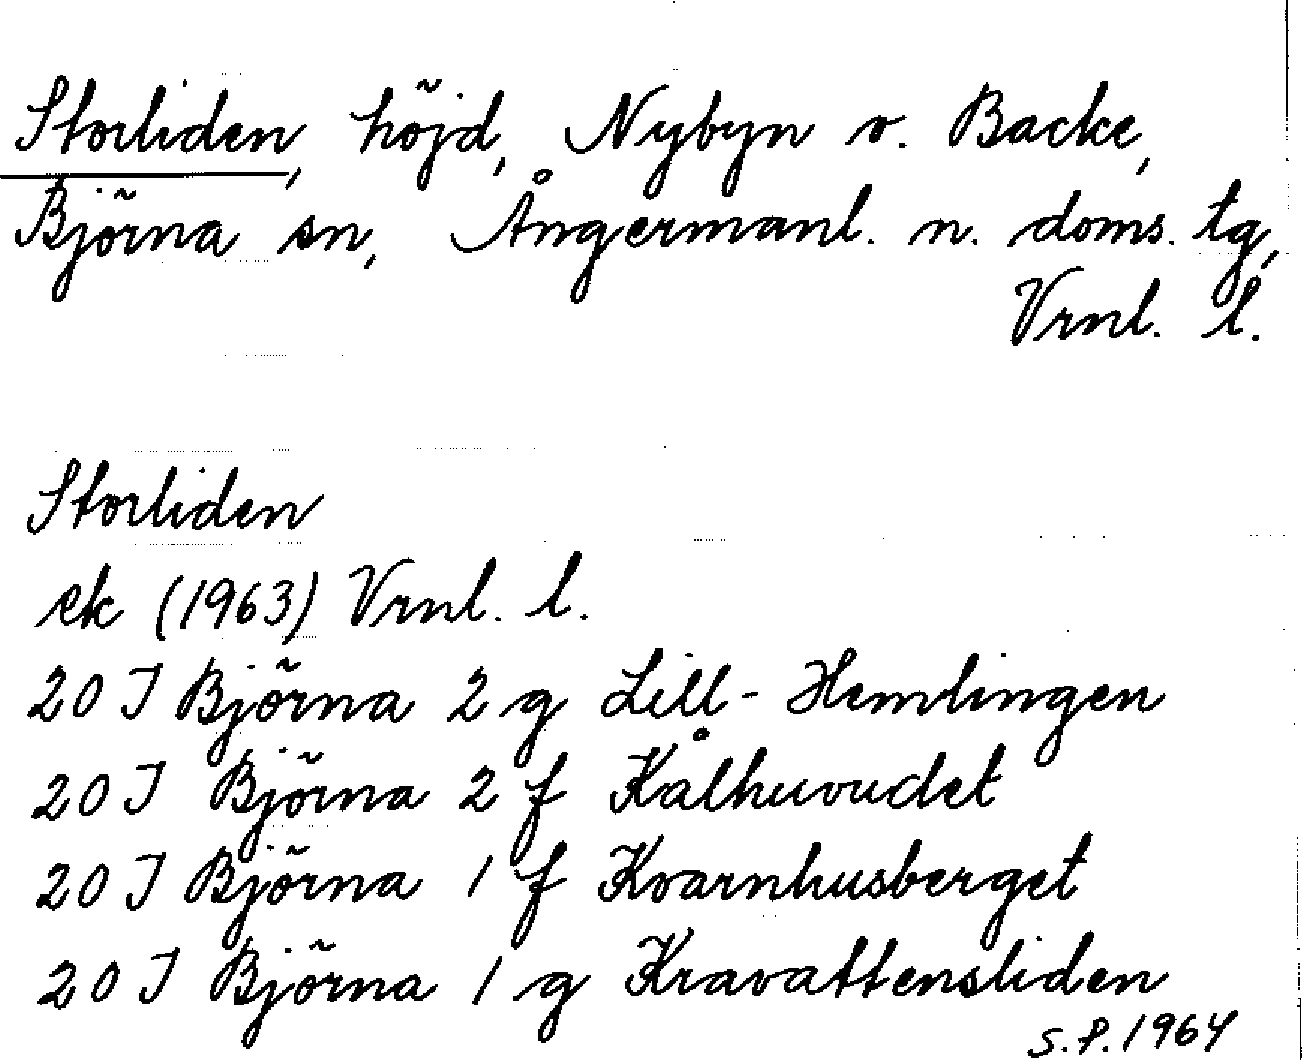 Storliden, höjd, Nybyn v. Backe,
Björna sn, Ångermanl. n. doms. tg,
Vrnl. l.
Storliden
ek (1963) Vrnl. l.
20 I Björna 2 g Lill-Hemlingen
20 I Björna 2 f Kålhuvudet
20 I Björna 1 f Kvarnhusberget
20 I Björna 1 g Kravattensliden
S.P. 1964